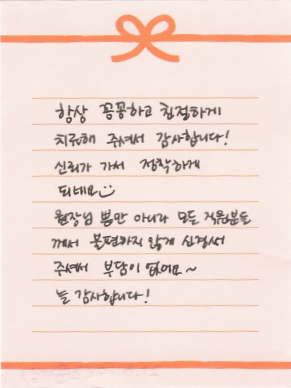 항상 꼼꼼하고 친절하게
치료해 주셔서 감사합니다!
신뢰가 가서 정착하게
되네요
원장님 뿐만 아니라 모든 직원분들
께서 불편하지 않게 신경써
주셔서 부담이 없어요~
늘 감사합니다!